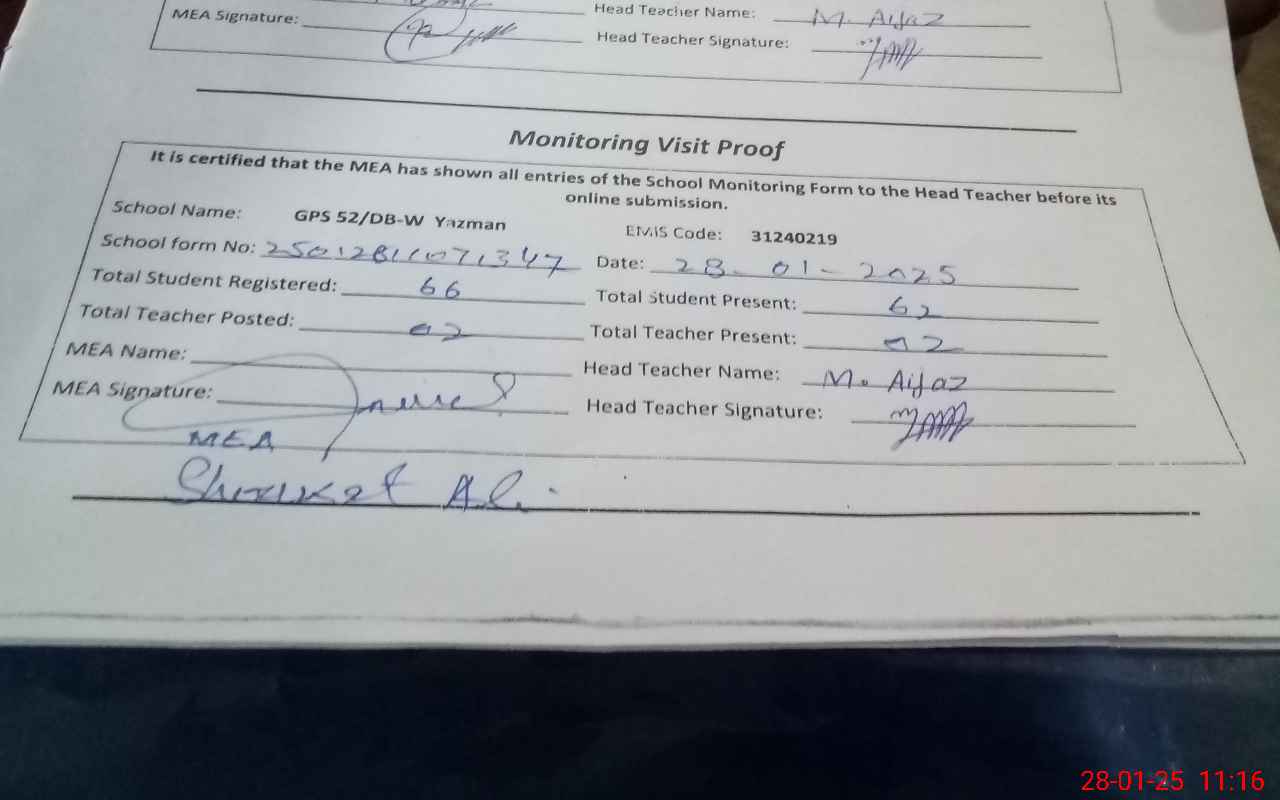 MEA Signature:
Head Teacher Name: M. Aijaz
Head Teacher Signature:
Monitoring Visit Proof
It is certified that the MEA has shown all entries of the School Monitoring Form to the Head Teacher before its
online submission.
School Name: GPS 52/DB-W Yazman EMIS Code: 31240219
School form No: Date: 28-01-2025
Total Student Registered: 66 Total Student Present: 62
Total Teacher Posted: 02 Total Teacher Present: 02
MEA Name: Head Teacher Name: M. Aijaz
MEA Signature: Head Teacher Signature:
MEA
Shoukat Ali
28-01-25 11:16